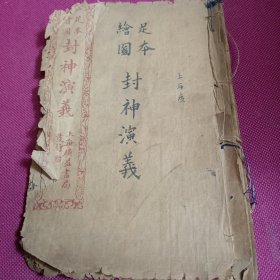 足本
繪圖
封神演義
上海廣
足本
繪圖
封神演義
上海廣益書局